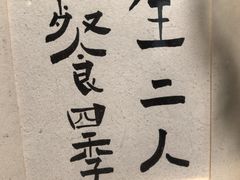 生二人
餐四季